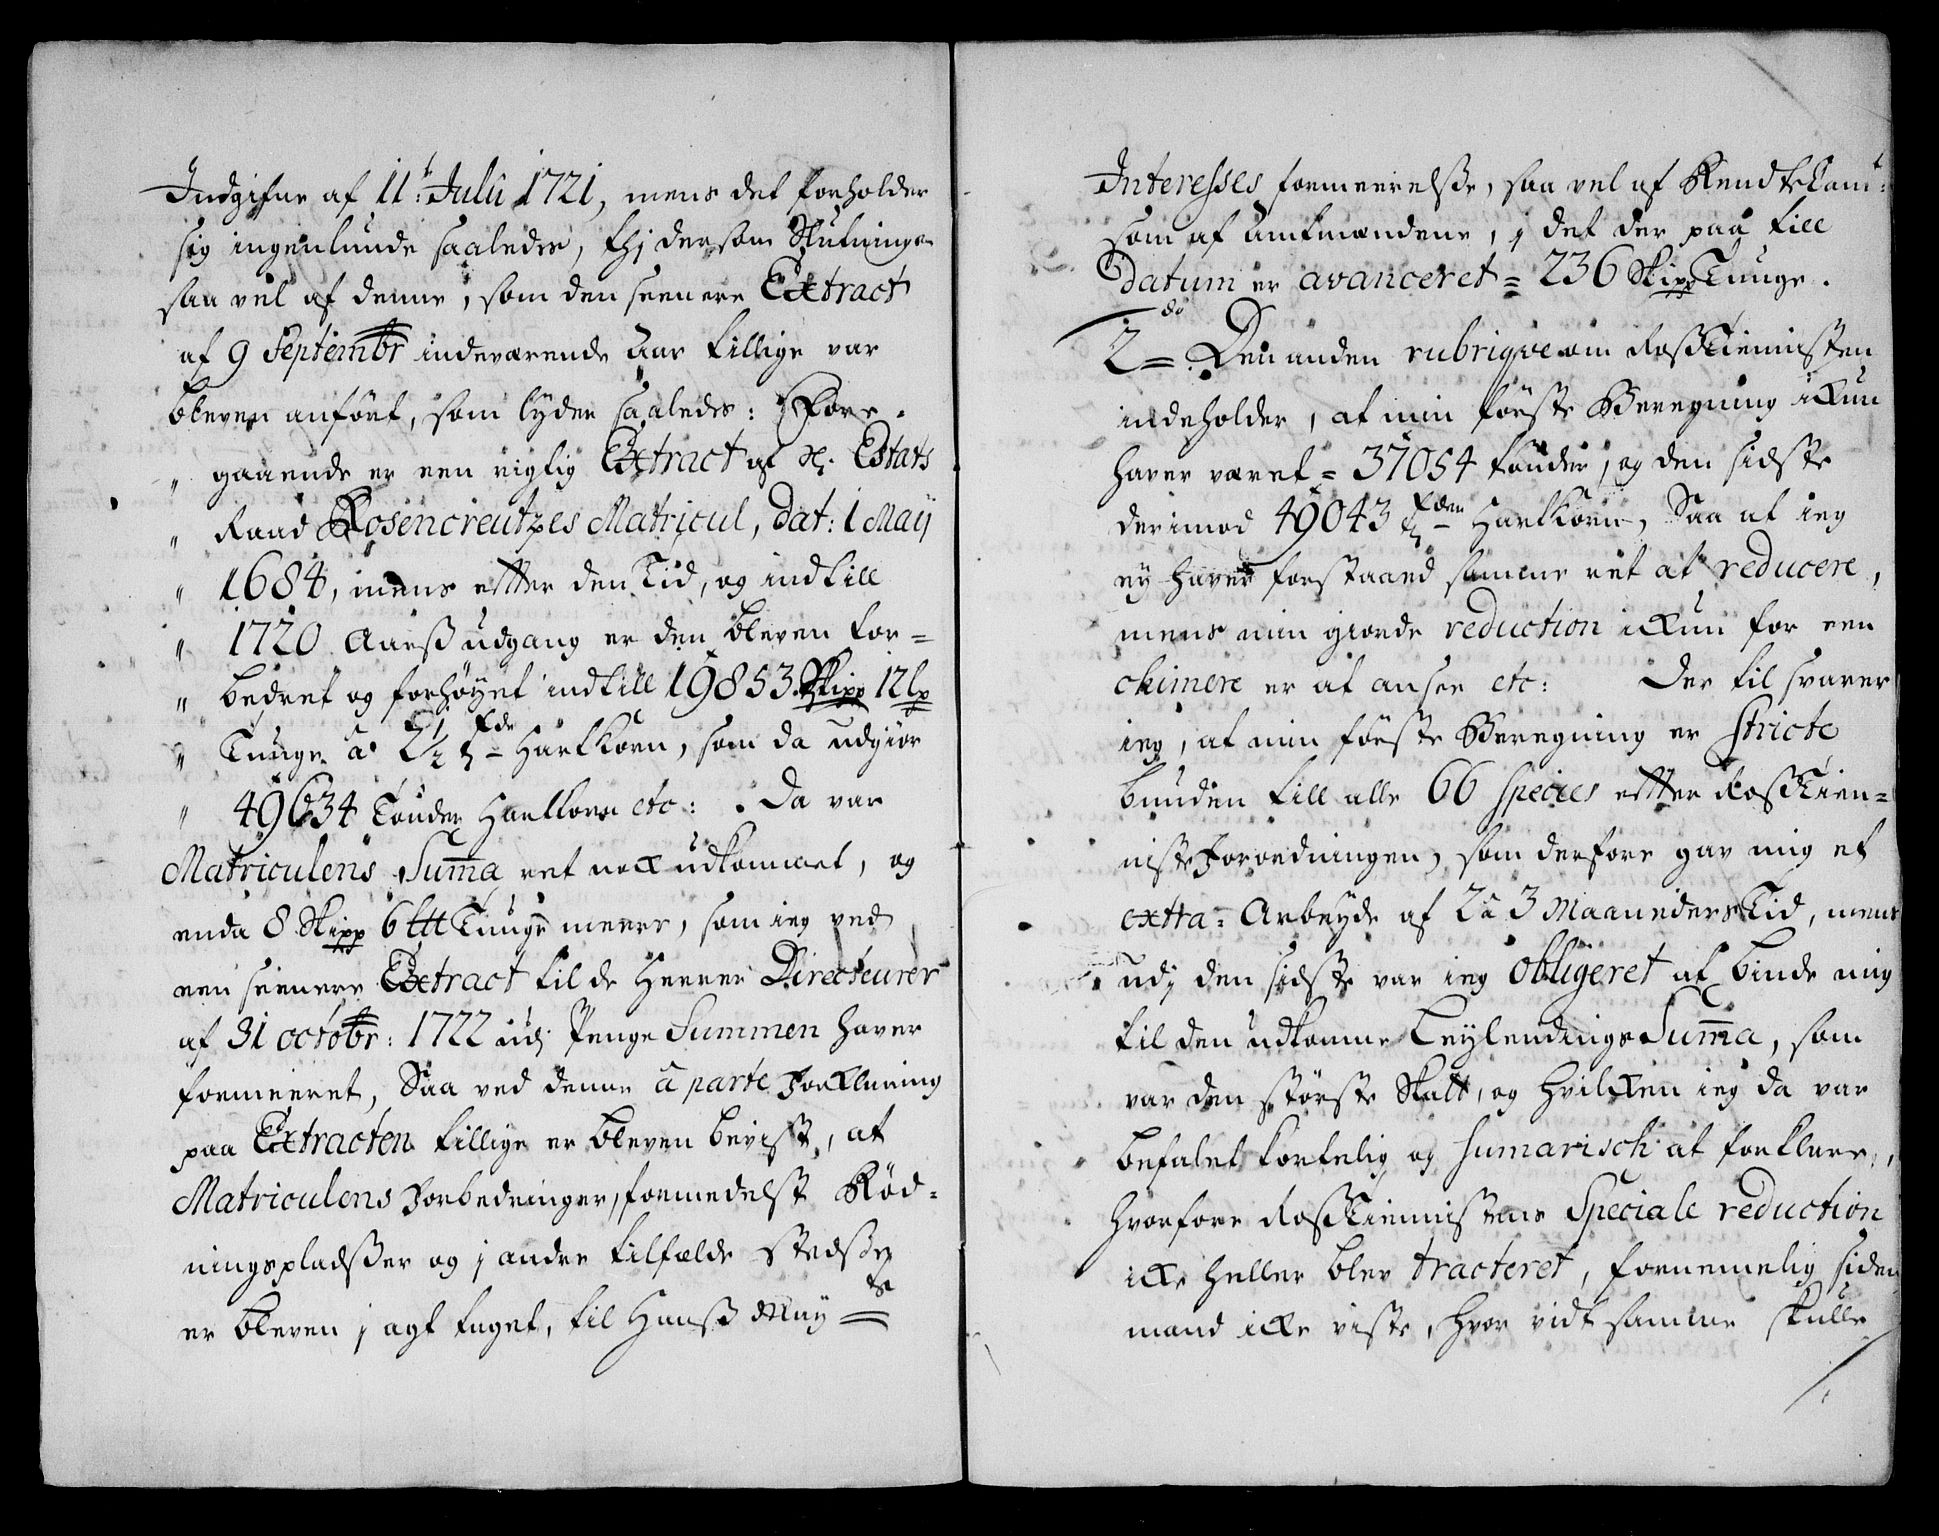 Indgifne af 11t: Julii 1721, mens det forholder
sig ingenlunde saaledes, thj dersom Slutningen
saa vel af denne, som den seenere Extract
af 9 Septembr indeværende Aar tillige var
bleven anført, som lyder saaledes: Fore-
„ gaaende er een rigtig Extract af H. Estats
„ Raad Rosencreutzes Matricul, dat: 1 Maij
„ 1684, mens efter den Tid, og indtill
„ 1720 Aarss udgang er den bleven for-
„ bedret og forhøyet indtill 19853 Skipp 12 lp
„ Tunge â 2½ Tde Hartkorn, som da udgiør
„ 49634 Tønder Hartkorn etc: . Da var
Matriculens Summa ret nok udkommet, og
enda 8 Skipp 6 Tunge meere, som ieg ved
een seenere Extract til de Herrer Directeurer
af 31 octobr: 1722 udj Penge Summen haver
formeeret, Saa ved denne â parte Forklaring
paa Extracten tillige er bleven bevist, at
Matriculens Forbedringer, formedelst Rød-
ningspladsser og j andre tilfælde stedsse
er bleven j agt taget, til Hanss May ts
Interesses formeerelsse, saa vel af Rendtekam:
som af Amtmændene, j det der paa till
Datum er avanceret = 236 Skipp Tunge.
2do = Den anden rubriqve om RossTiennisten
indeholder, at min første Beregning ikun
haver været = 37054 tønder, og den sidste
derimod 49043 Tder Hartkorn, Saa at ieg
ey haver forstaaed samme ret at reducere,
mens min giorde reduction ikun for een
chimere er at ansee etc: Der til svarer
ieg, at min første Beregning er stricte
bunden till alle 66 species efter RossTien-
nisteForordningen, som derfore gav mig et
extra = Arbeyde af 2 â 3 Maaneders Tid, mens
udj den sidste var ieg obligeret at binde mig
til den udkomne Leylendings Summa, som
var den største Skatt, og hvilken ieg da var
befalet kortelig og sumarisch at forklare,
hvorfore RossTiennistens Speciale reduction
ikke heller blev tracteret, fornemelig siden
mand ikke viste, hvor vidt samme skulle